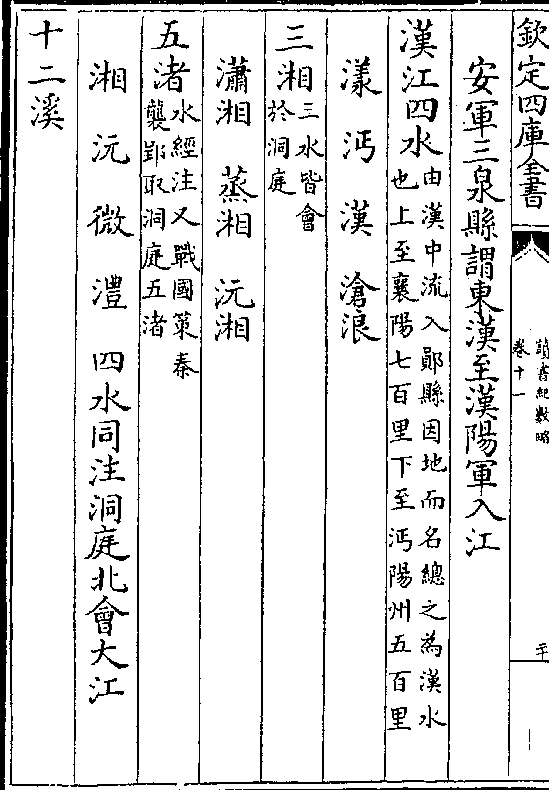 欽定四庫全書
讀書紀數略
卷十一
二十
安軍三泉縣謂東漢至漢陽軍入江
漢江四水由漢中流入鄖縣因地而名總之為漢水
也上至襄陽七百里下至沔陽州五百里
漾 沔 漢 滄浪
三湘三水皆會
於洞庭
瀟湘 蒸湘 沅湘
五渚水經注又戰國策秦
襲郢取洞庭五渚
湘 沅 微 澧 四水同注洞庭北會大江
十二溪